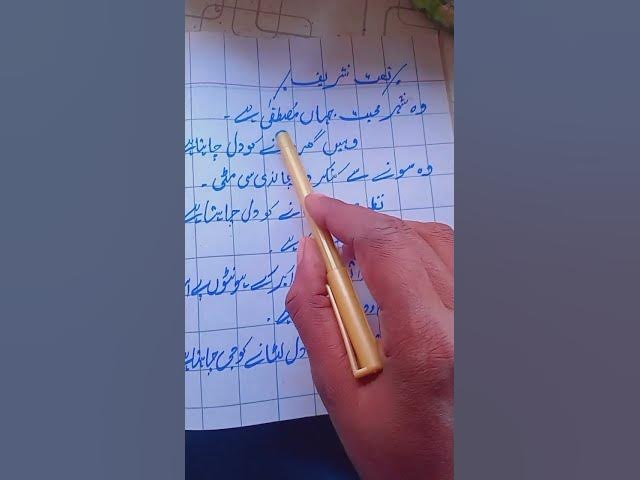 نعت شریف
وہ شہر محبت جہاں مصطفیٰ ہے۔
وہیں گھر نے کو دل چاہتا ہے
وہ سونے سے کنکر چاندی سی مٹی۔
نے کو دل چاہتا ہے
ہے۔
کے ہونٹوں پے
ہے۔
دل لٹانے کو جی چاہتا ہے